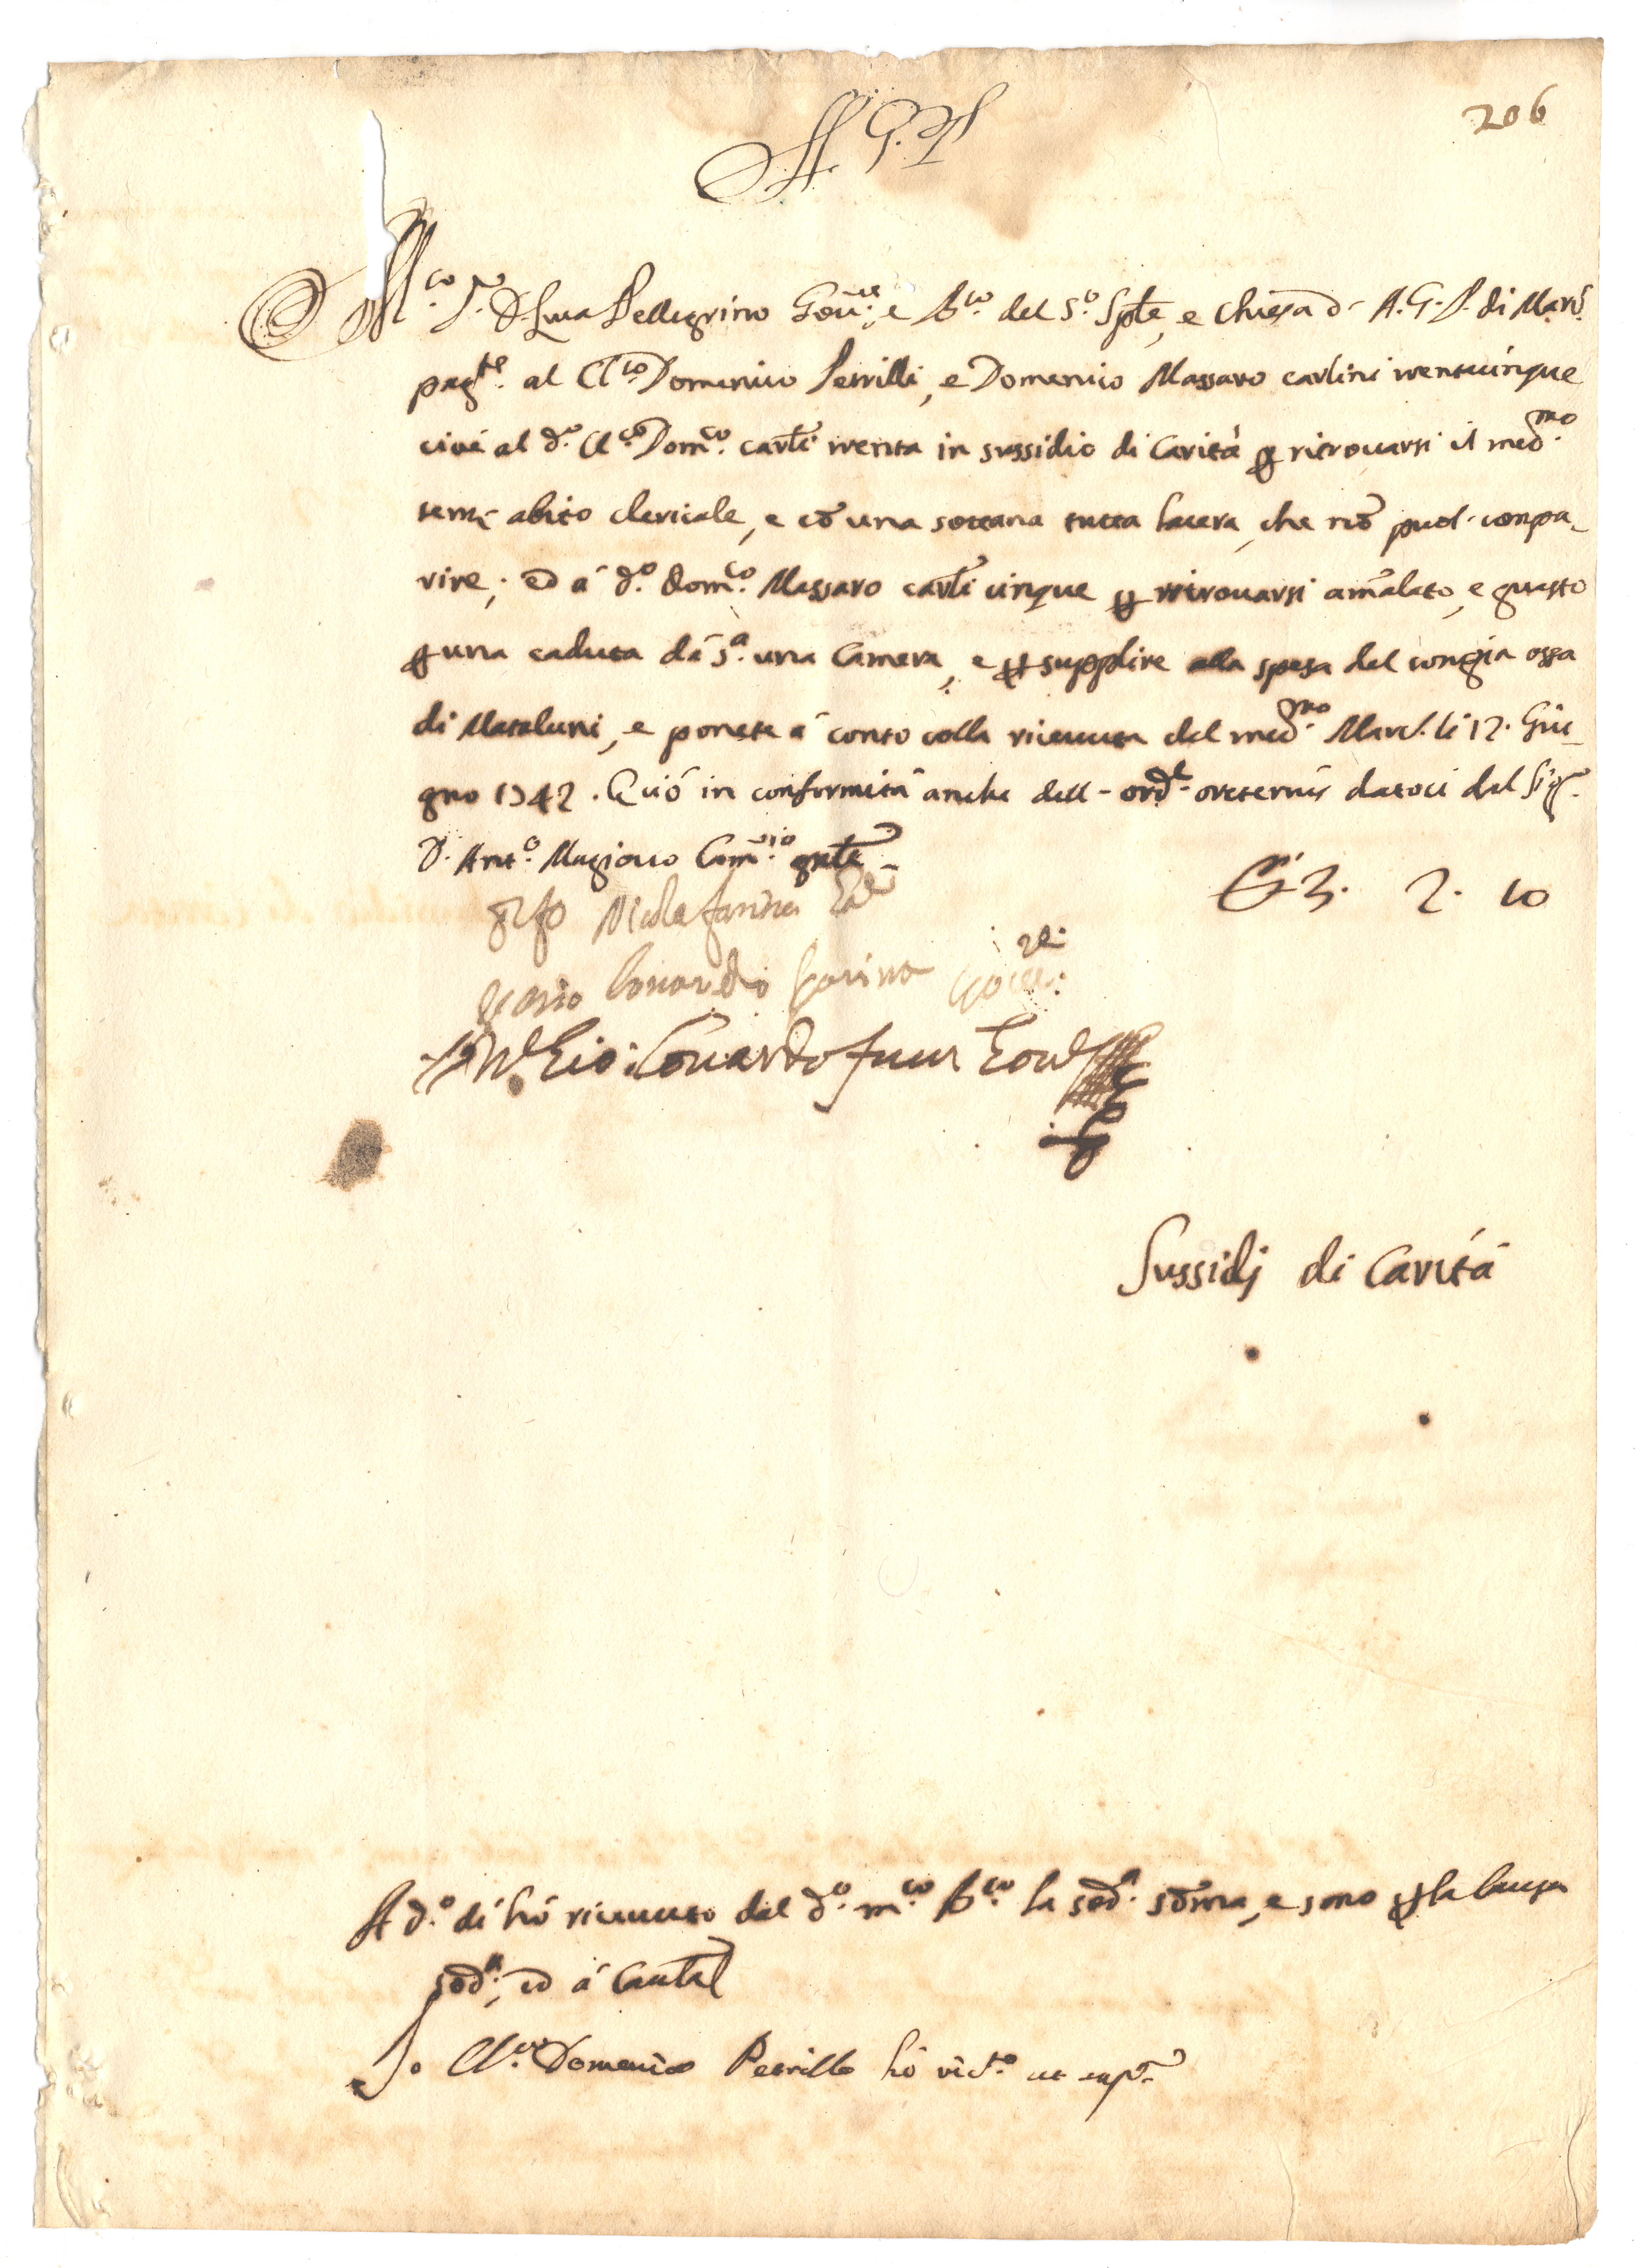 206
A. G. P.
M.co S.r D. Luca Pellegrino Gov.re, e B.co del S.o Sple, e Chiesa d- A. G. P. di Marc.
pag.te al Cl.co Domenico Petrilli, e Domenico Massaro carlini trentacinque
cioè al d.o Cl.co Dom.co carli trenta in sussidio di Carità p ritrovarsi il med.mo
senz abito clericale, e cō una sottana tutta lacera, che nō puol compa-
rire; ed à d.o Dom.co Massaro carli cinque p ritrovarsi amalato, e guasto
p una caduta dà s.a una Camera, e p supplire alla spesa del congia ossa
di Mataluni, e ponete à conto colla ricevuta del med.mo Marc. li 12. Giu-
gno 1742. E ciò in conformità anche dell- ord.e datoci dal Sig.r
D. Ant.o Magiocco Com.rio gnle
Nicola farina
Lonardo farina
Gio: Lonardo
3. 2. 10
Sussidj di Carità
A d.o dì hò ricevuto dal d.o m.co B.co la sod.a sōma, e sono p la causa
sod.a, ed à Cautal
Io Cl.co Domenico Petrillo hò ric.to ut sup.a